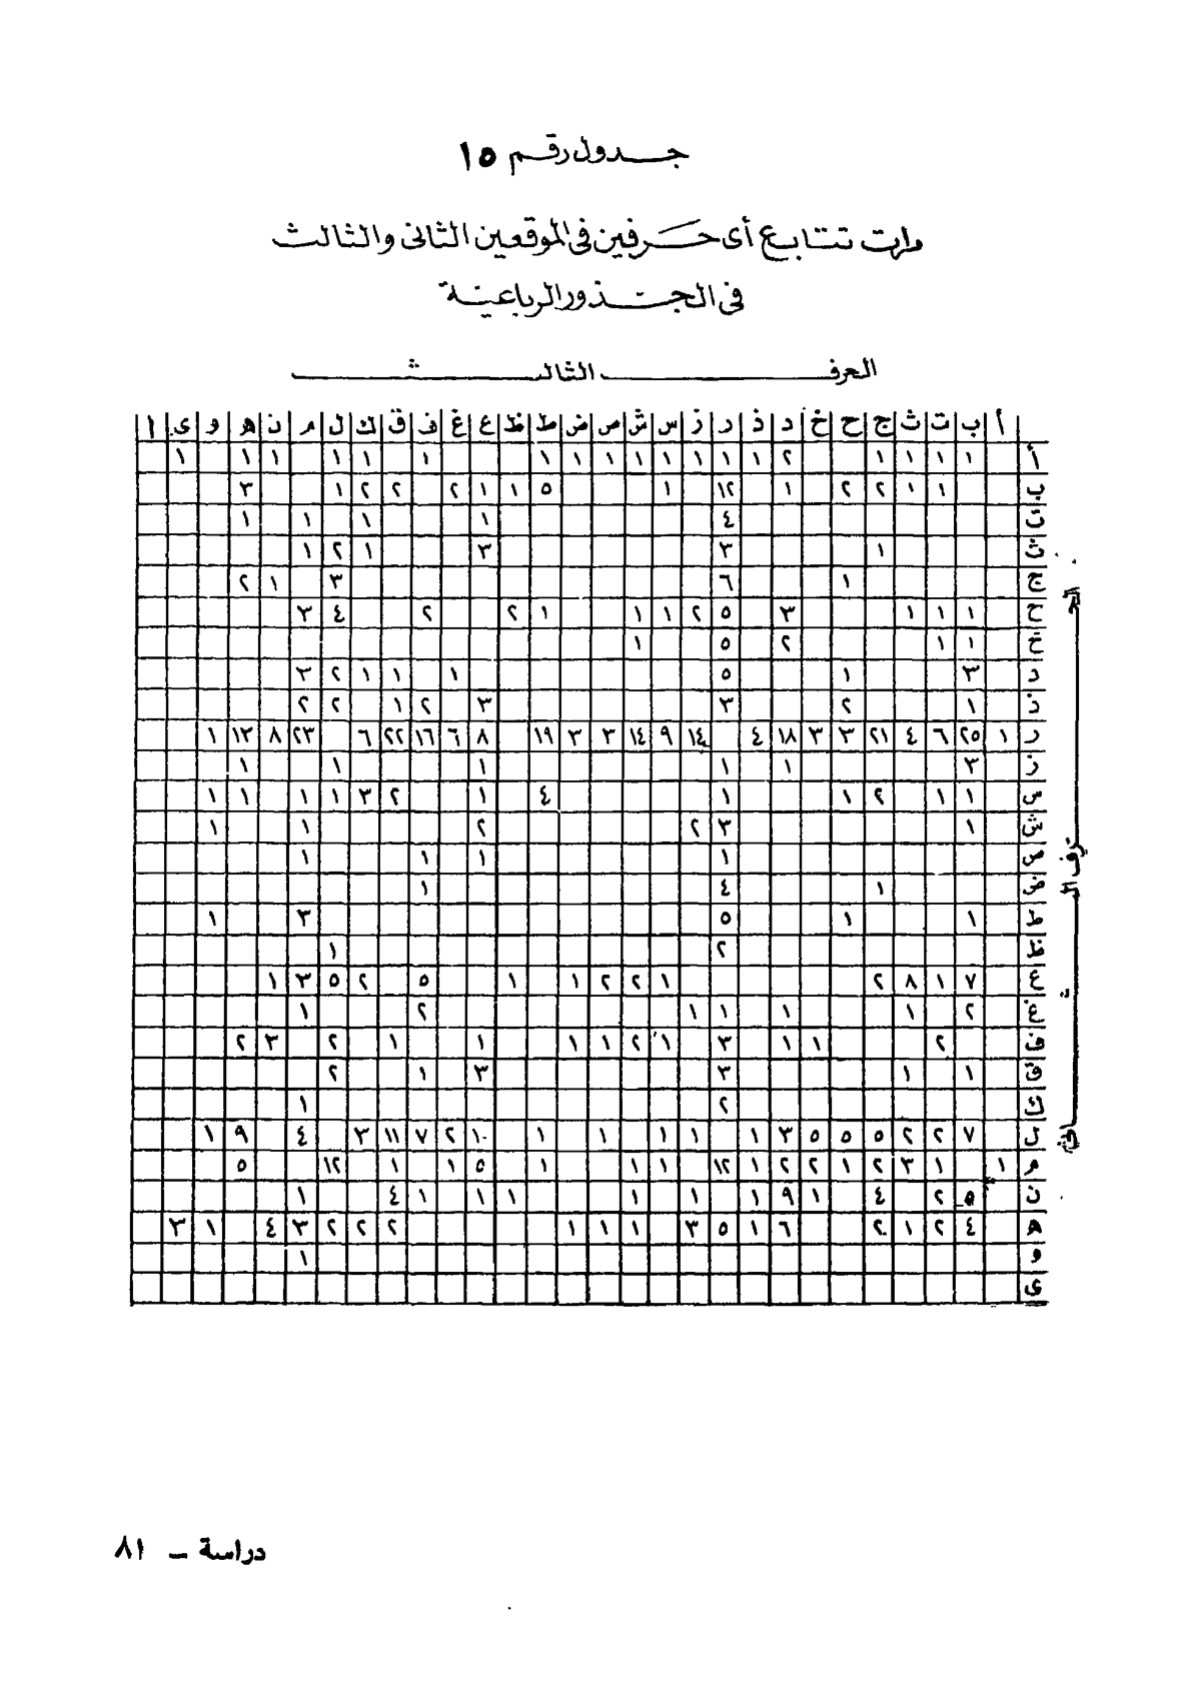 جدول رقم ١٥
مرات تتابع أى حرفين فى الموقعين الثانى والثالث
فى الجذور الرباعية
الحرف الثالث
أ ب ت ث ج ح خ د ذ ر ز س ش ص ض ط ظ ع غ ف ق ك ل م ن ه و ى ا
أ ١ ١ ١ ١ ٢ ١ ١ ١ ١ ١ ١ ١ ١ ١ ١ ١ ١ ١ ١
ب ١ ١ ٢ ٢ ١ ١٢ ١ ٥ ١ ١ ٢ ٢ ٢ ١ ٣
ت ٤ ١ ١ ١ ١
ث ١ ٣ ٣ ١ ٢ ١
ج ١ ٦ ٣ ١ ٢
ح ١ ١ ١ ٣ ٥ ٢ ١ ١ ١ ٢ ٢ ٤ ٣
خ ١ ١ ٢ ٥ ١
د ٣ ١ ٥ ١ ١ ١ ٢ ٣
ذ ١ ٢ ٣ ٣ ٢ ١ ٢ ٢
ر ١ ٢٥ ٦ ٤ ٢١ ٣ ٣ ١٨ ٤ ١٤ ٩ ١٤ ٣ ٣ ١٩ ٨ ٦ ١٦ ٢٢ ٦ ٢٣ ٨ ١٣ ١
ز ٣ ١ ١ ١ ١ ١
س ١ ١ ٢ ١ ١ ٤ ١ ٢ ٣ ١ ١ ١ ١
ش ١ ٣ ٢ ٢ ١ ١
ص ١ ١ ١ ١
ض ١ ٤ ١
ط ١ ١ ٥ ٣ ١
ظ ٢ ١
ع ٧ ١ ٨ ٢ ١ ٢ ٢ ١ ١ ٥ ٢ ٥ ٣ ١
غ ٢ ١ ١ ١ ١ ٢ ١
ف ٢ ١ ١ ٣ ١ ٢ ١ ١ ١ ١ ٢ ٣ ٢
ق ١ ١ ٣ ٣ ١ ٢
ك ٢ ١
ل ٧ ٢ ٢ ٥ ٥ ٥ ٣ ١ ١ ١ ١ ١ ١٠ ٢ ٧ ١١ ٣ ٤ ٩ ١
م ١ ١ ٣ ٢ ١ ٢ ٢ ١ ١٢ ١ ١ ١ ٥ ١ ١ ١٢ ٥
ن ٥ ٢ ٤ ١ ٩ ١ ١ ١ ١ ١ ١ ٤ ١
ه ٤ ٢ ١ ٢ ٦ ١ ٥ ٣ ١ ١ ١ ٢ ٢ ٢ ٣ ٤ ١ ٣
و ١
ى
دراسة – ٨١